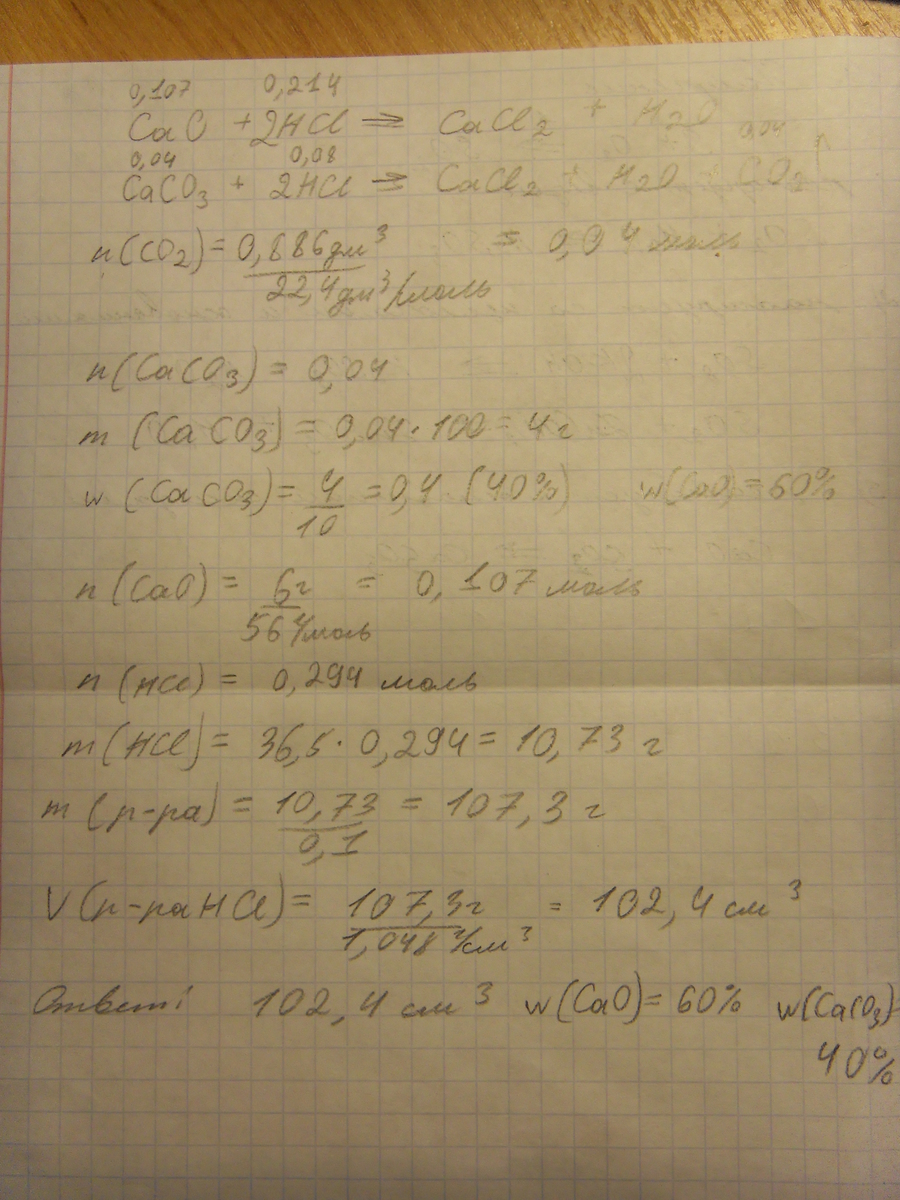 0,107 0,214
CaO + 2HCl ⇒ CaCl₂ + H₂O
0,04 0,08 0,04
CaCO₃ + 2HCl ⇒ CaCl₂ + H₂O CO₂↑
n(CO₂) = 0,886дм³ / 22,4дм³/моль = 0,04 моль
n(CaCO₃) = 0,04
m (CaCO₃) = 0,04 · 100 = 4 г
w (CaCO₃) = 4/10 = 0,4 (40%) w(CaO) = 60%
n (CaO) = 6г / 56 г/моль = 0,107 моль
n (HCl) = 0,294 моль
m(HCl) = 36,5 · 0,294 = 10,73 г
m (р-ра) = 10,73 / 0,1 = 107,3 г
V (р-ра HCl) = 107,3г / 1,048 г/см³ = 102,4 см³
Ответ: 102,4 см³ w(CaO) = 60% w(CaCO₃) =
40%